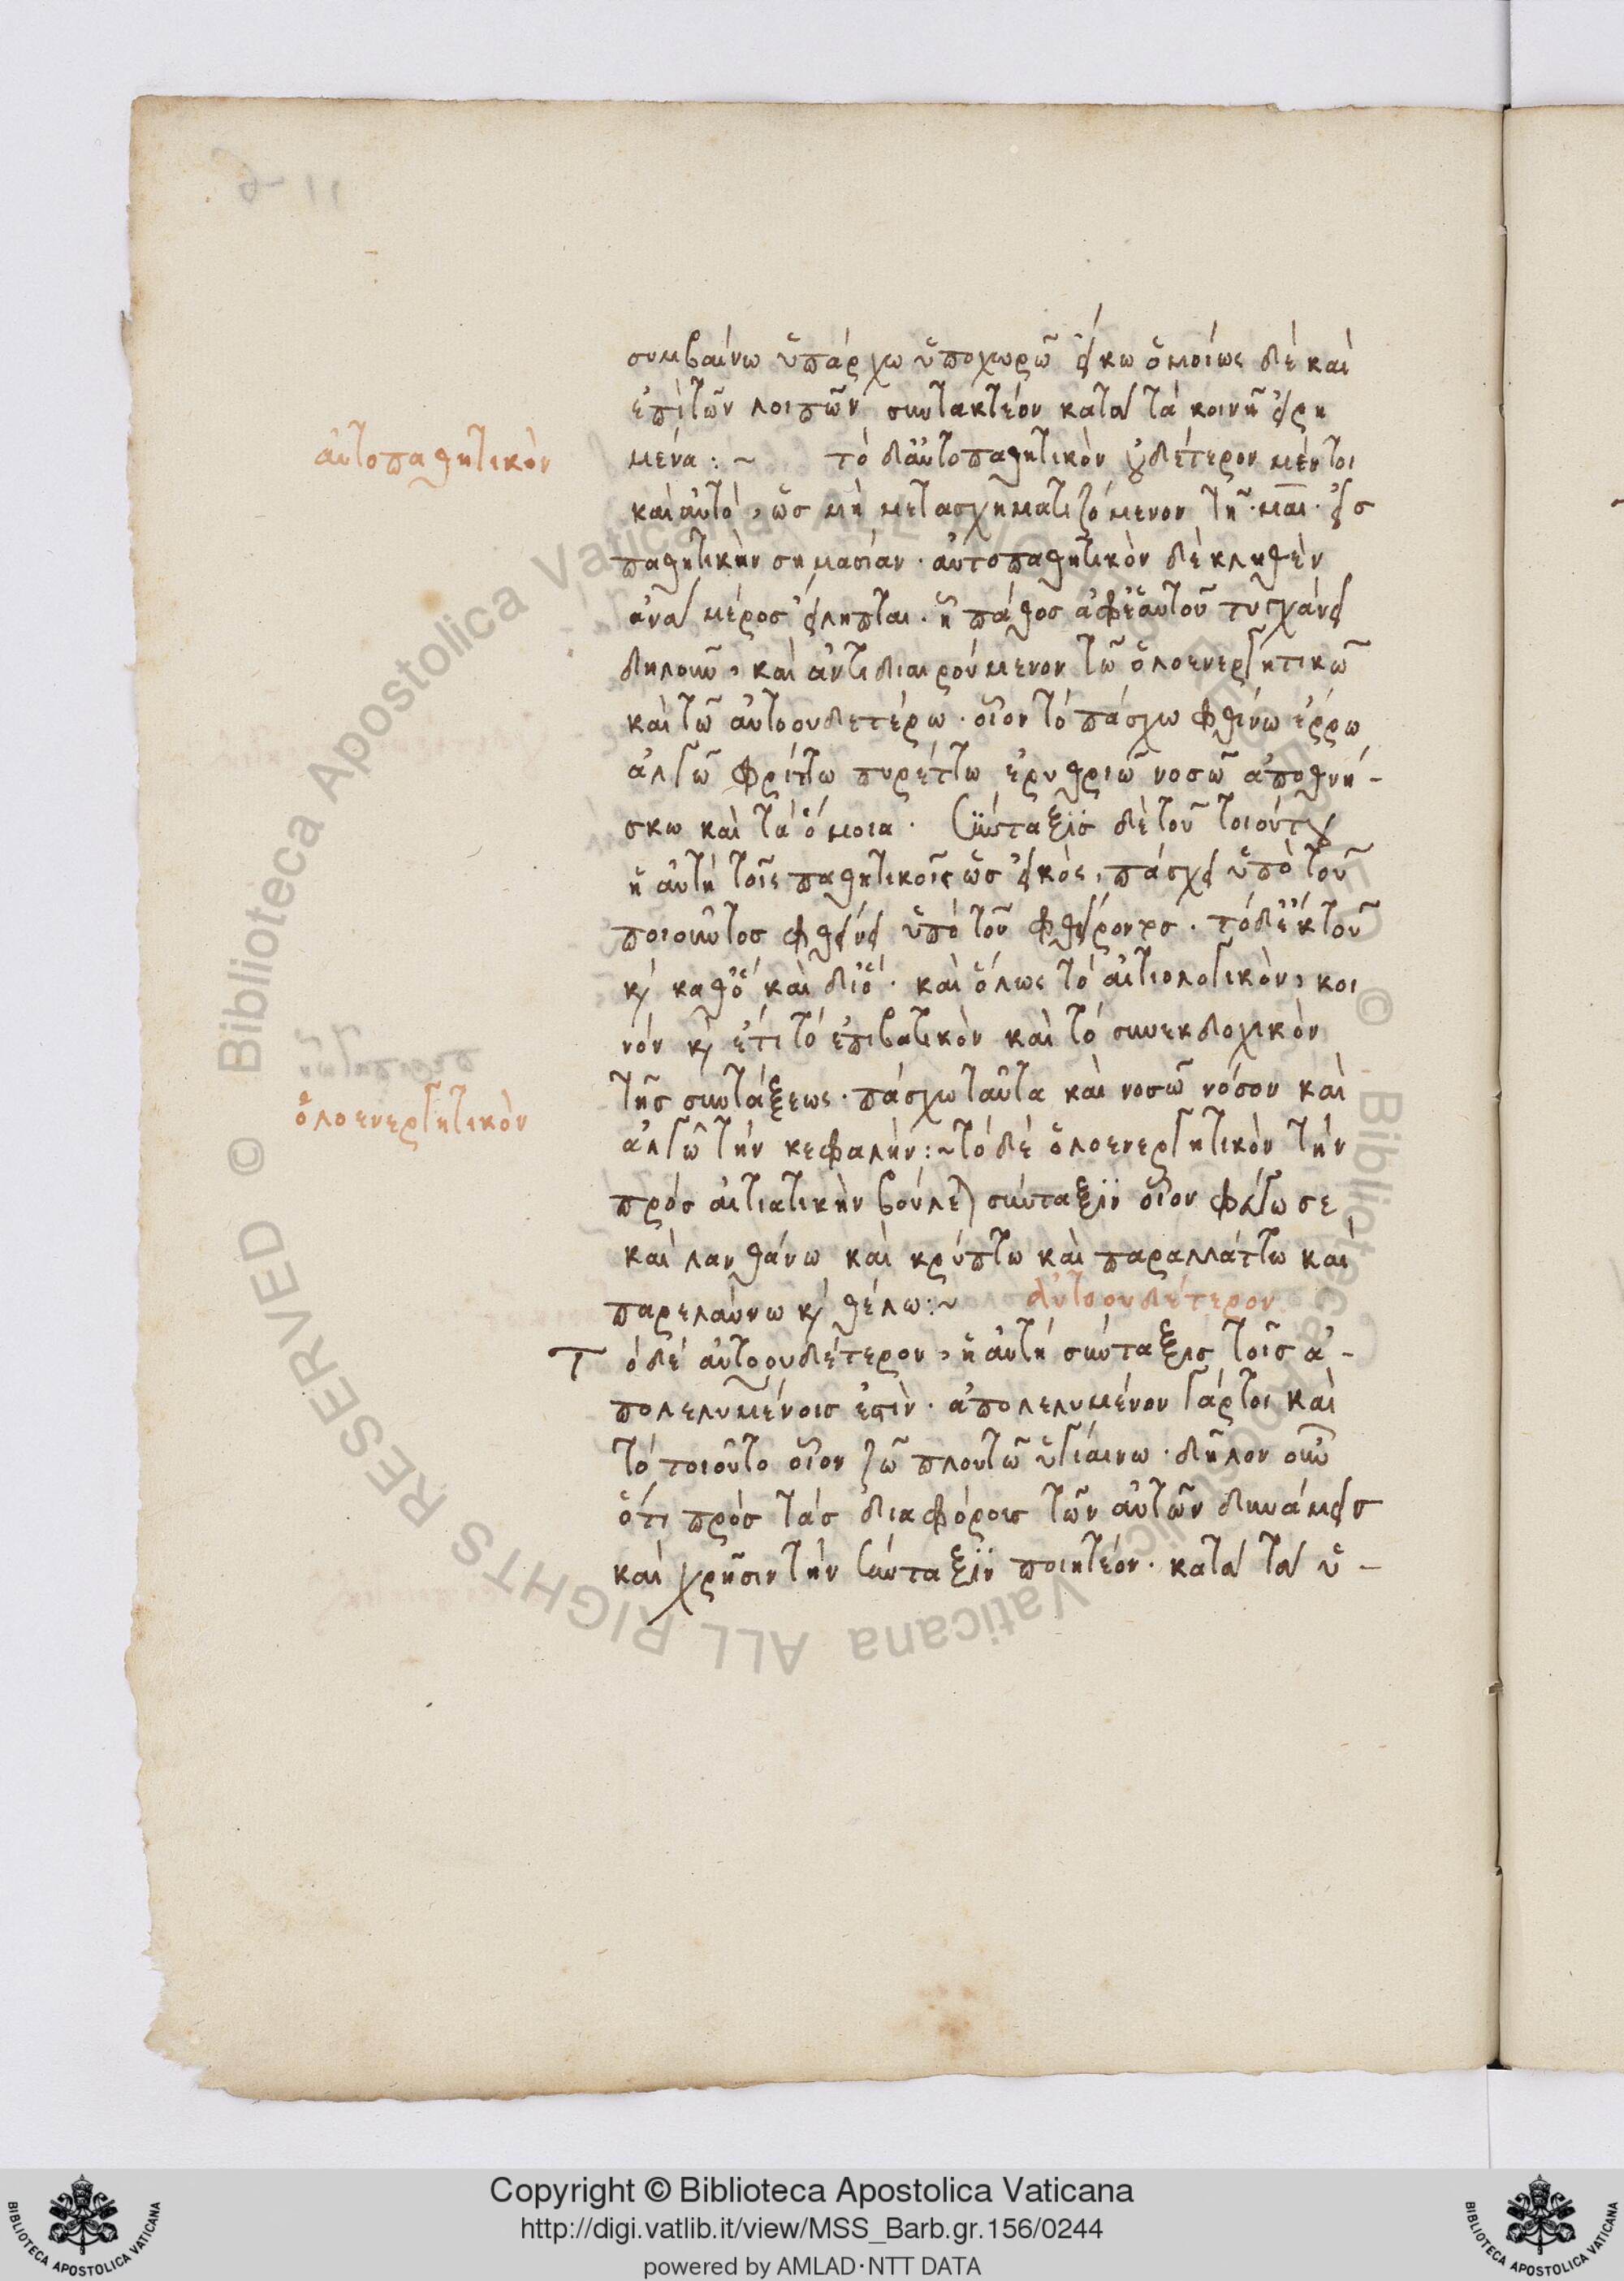 συμβαίνω ὑπάρχω ὑποχωρῶ εἴκω ὁμοίως δὲ καὶ
ἐπὶ τῶν λοιπῶν συντακτέον κατὰ τὰ κοινῇ εἰρη
αὐτοπαθητικὸν
μένα :~ τὸ δ᾽ αὐτοπαθητικὸν οὐδέτερον μέντοι
καὶ αὐτό, ὡς μὴ μετασχηματιζόμενον τῇ μαι εἰς
παθητικὴν σημασίαν. αὐτοπαθητικὸν δὲ κληθὲν
ἀνὰ μέρος εἴληπται. ἢ πάθος ἀφ᾽ ἑαυτοῦ τυγχάνει
δηλοῦν, καὶ ἀντιδιαιρούμενον τῶ ὁλοενεργητικῶ
καὶ τῶ αὐτοουδετέρω. οἷον τὸ πάσχω φθίνω ἔρρω
ἀλγῶ φρίττω πυρέττω ἐρυθριῶ νοσῶ ἀποθνή-
σκω καὶ τὰ ὅμοια. Σύνταξις δὲ τοῦ τοιούτου
ἡ αὐτὴ τοῖς παθητικοῖς ὡς εἰκὸς, πάσχει ὑπὸ τοῦ
ποιοῦντος φθείνει ὑπὸ τοῦ φθείροντος. τὸ δὲ ἐκ τοῦ
κ καθ᾽ ὃ καὶ δι᾽ ὃ. καὶ ὅλως τὸ αἰτιολογικὸν, κοι
νόν κ ἔτι τὸ ἐπιβατικὸν καὶ τὸ συνεκδοχικὸν
τῆς συντάξεως. πάσχω ταῦτα καὶ νοσῶ νόσον καὶ
ὁλοενεργητικὸν
ἀλγῶ τὴν κεφαλήν :~ τὸ δὲ ὁλοενεργητικὸν τὴν
πρὸς αἰτιατικὴν βούλεται σύνταξιν οἷον φεύγω σε
καὶ λανθάνω καὶ κρύπτω καὶ παραλλάττω καὶ
παρελαύνω κ θέλω :~ αὐτοουδέτερον
Τὸ δὲ αὐτοουδέτερον, ἡ αὐτὴ σύνταξις τοῖς ἀ-
πολελυμένοις ἐστὶν. ἀπολελυμένον γάρ τοι καὶ
τὸ τοιοῦτο οἷον ζῶ πλουτῶ ὑγιαίνω. δῆλον οὖν
ὅτι πρὸς τὰς διαφόροις τῶν αὐτῶν δυνάμεις
καὶ χρῆσιν τὴν σύνταξιν ποιητέον. κατὰ τὰ ὑ-
Copyright © Biblioteca Apostolica Vaticana
http://digi.vatlib.it/view/MSS_Barb.gr.156/0244
powered by AMLAD·NTT DATA
BIBLIOTECA APOSTOLICA VATICANA
BIBLIOTECA APOSTOLICA VATICANA